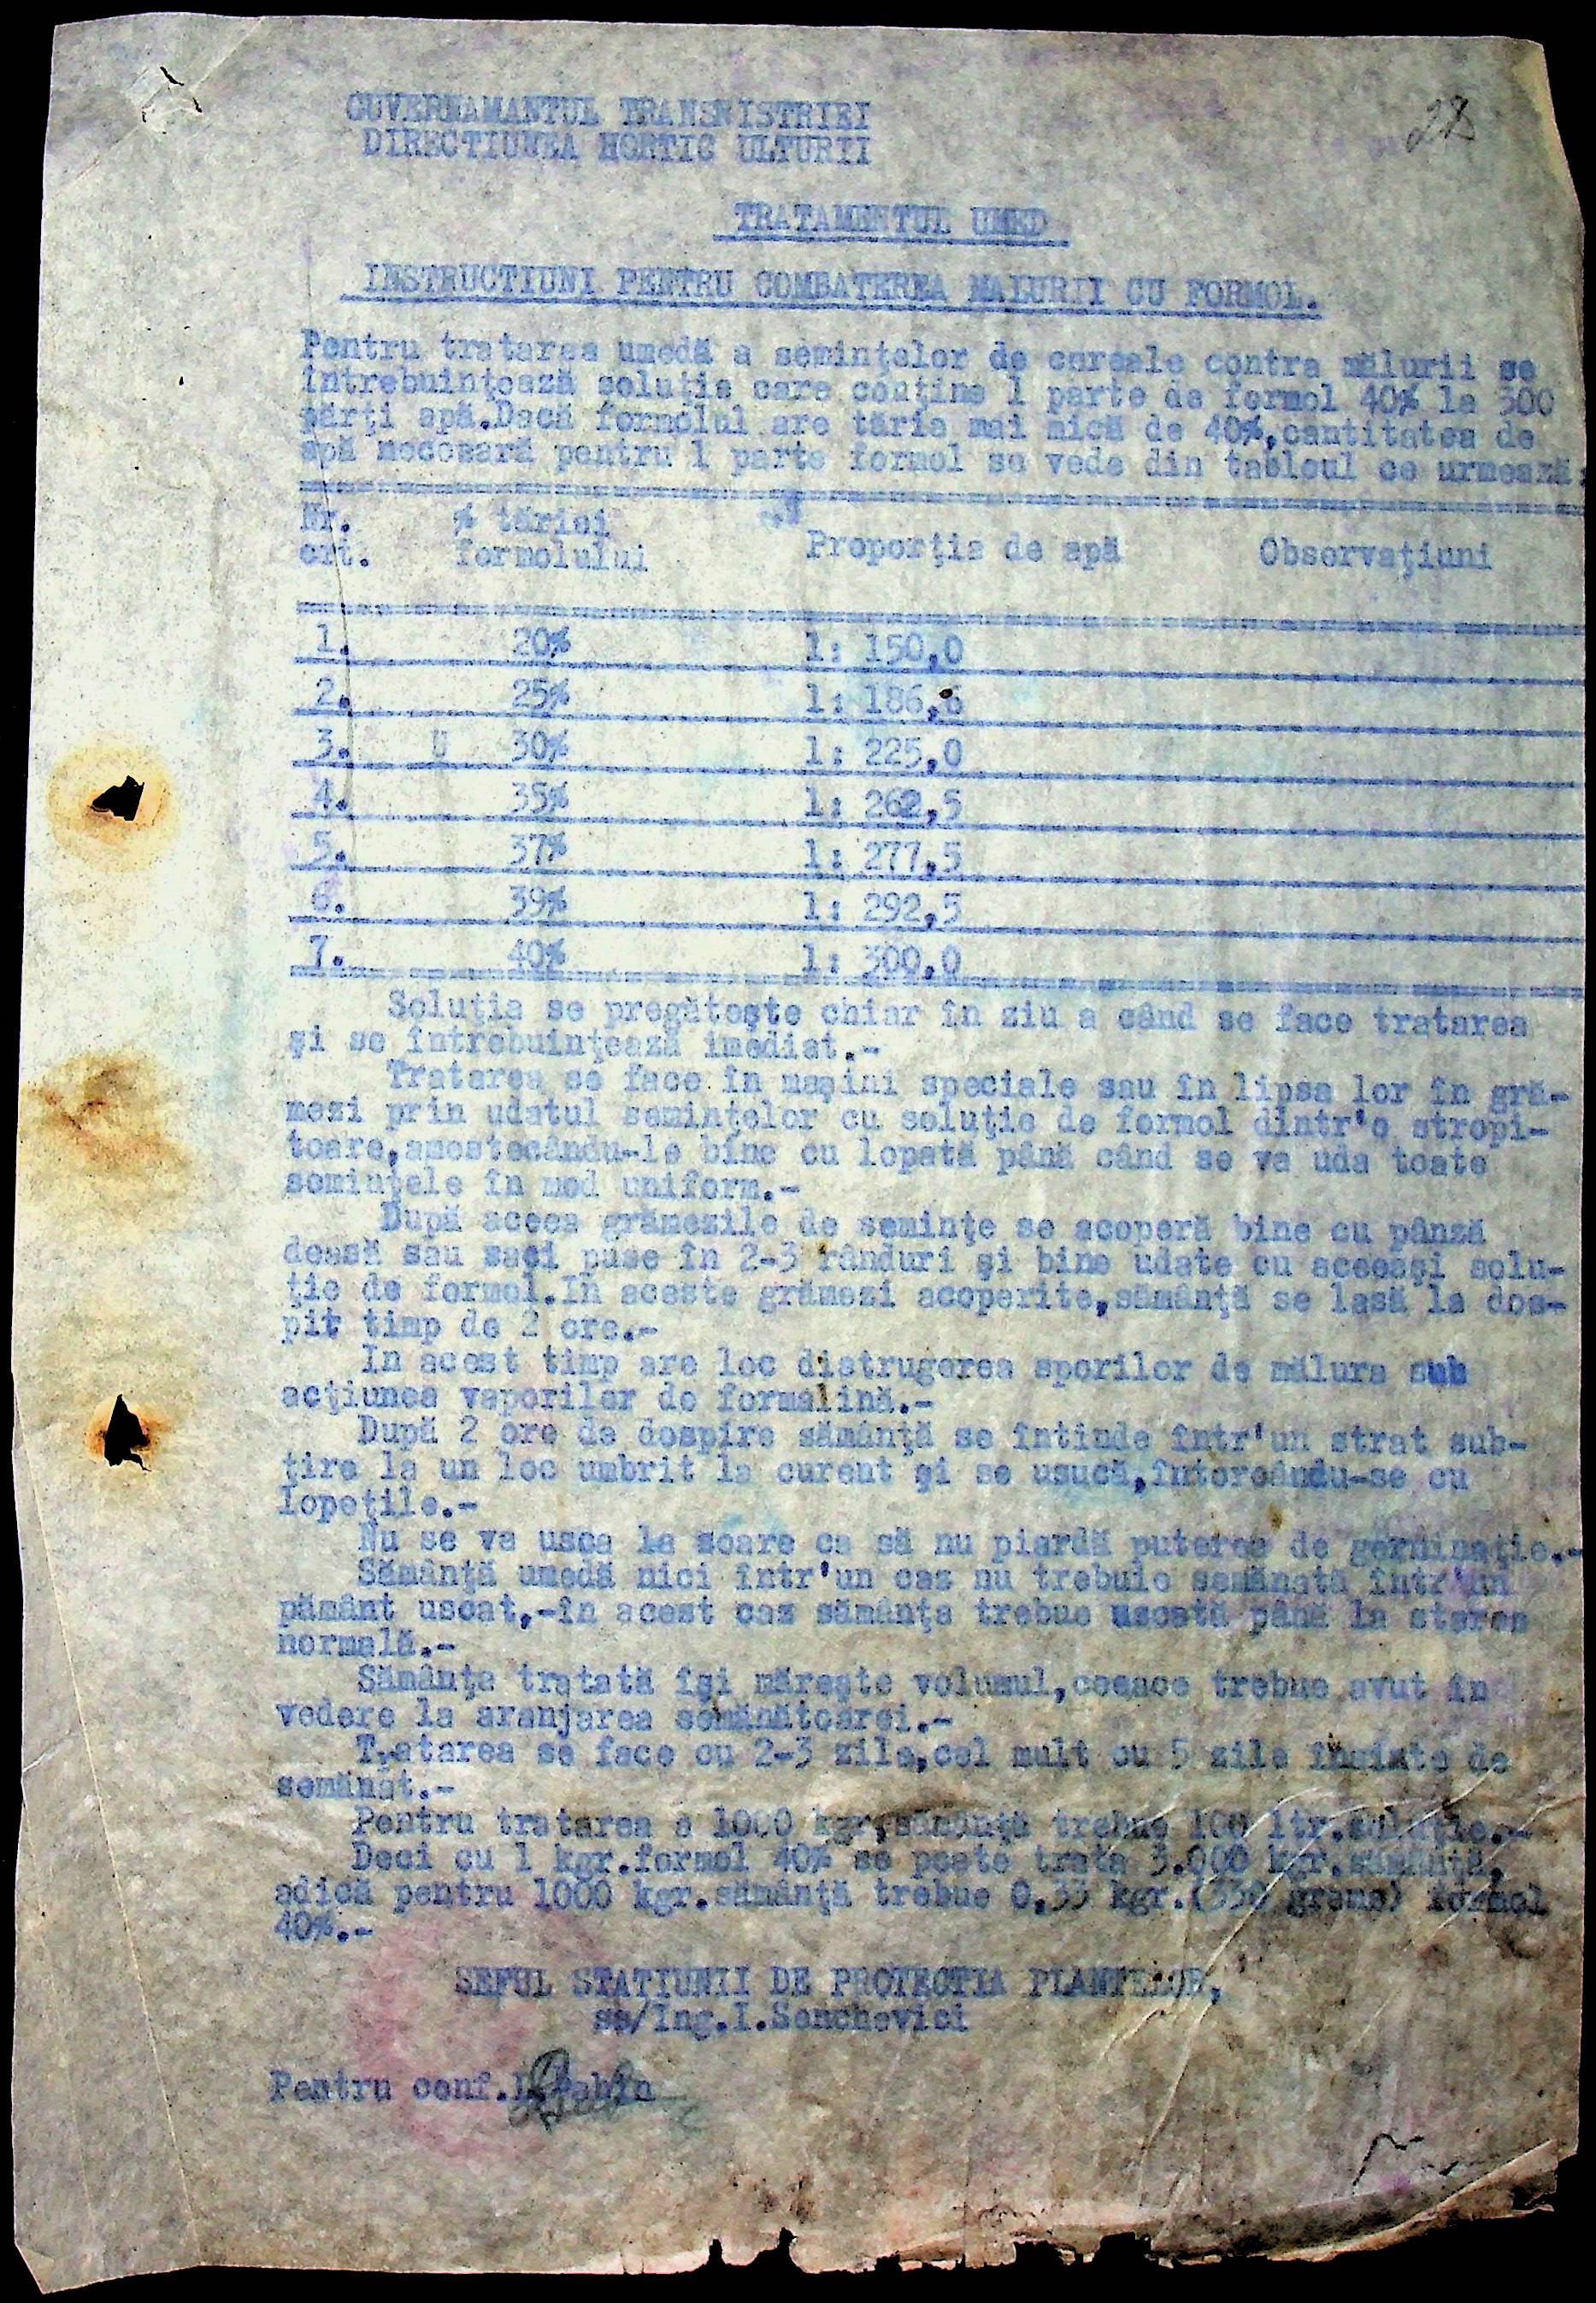 28
GUVERNAMANTUL TRANSNISTRIEI
DIRECTIUNEA HORTIC ULTURII
TRATAMENTUL UMED
INSTRUCTIUNI PENTRU COMBATEREA MALURII CU FORMOL.
Pentru tratarea umedă a semințelor de cereale contra mălurii se
întrebuințează soluție care conține 1 parte de formol 40% la 300
părți apă.Dacă formolul are tăria mai mică de 40%,cantitatea de
apă necesară pentru 1 parte formol se vede din tabloul ce urmează:
Nr. % tăriei
crt. formolului Proporția de apă Observațiuni
1. 20% 1: 150,0
2. 25% 1: 186,6
3. 30% 1: 225,0
4. 35% 1: 262,5
5. 37% 1: 277,5
6. 39% 1: 292,5
7. 40% 1: 300,0
Soluția se pregătește chiar în ziu a când se face tratarea
și se întrebuințează imediat.-
Tratarea se face în mașini speciale sau în lipsa lor în gră-
mezi prin udatul semințelor cu soluție de formol dintr'o stropi-
toare,amestecându-le bine cu lopată până când se va uda toate
semințele în mod uniform.-
După aceea grămezile de semințe se acoperă bine cu pânză
deasă sau saci puse în 2-3 rânduri și bine udate cu aceeași solu-
ție de formol.In aceste grămezi acoperite,sămânță se lasă la dos-
pit timp de 2 ore.-
In acest timp are loc distrugerea sporilor de mălura sub
acțiunea vaporilor de formalină.-
După 2 ore de dospire sămânță se întinde într'un strat sub-
țire la un loc umbrit la curent și se usucă,întorcându-se cu
lopețile.-
Nu se va usca la soare ca să nu piardă puterea de germinație.-
Sămânță umedă nici într'un caz nu trebuie semănată într'un
pământ uscat,-în acest caz sămânța trebue uscată până la starea
normală.-
Sămânța tratată își mărește volumul,ceeace trebue avut în
vedere la aranjarea semănătoarei.-
Tratarea se face cu 2-3 zile,cel mult cu 5 zile înainte de
semănat.-
Pentru tratarea a 1000 kgr,sămânță trebue 100 ltr.soluție.-
Deci cu 1 kgr.formol 40% se poate trata 3.000 kgr.sămânță,
adică pentru 1000 kgr.sămânță trebue 0,33 kgr.(330 grame) formol
40%.-
SEFUL STATIUNII DE PROTECTIA PLANTELOR,
ss/Ing.I.Senchevici
Pentru conf.